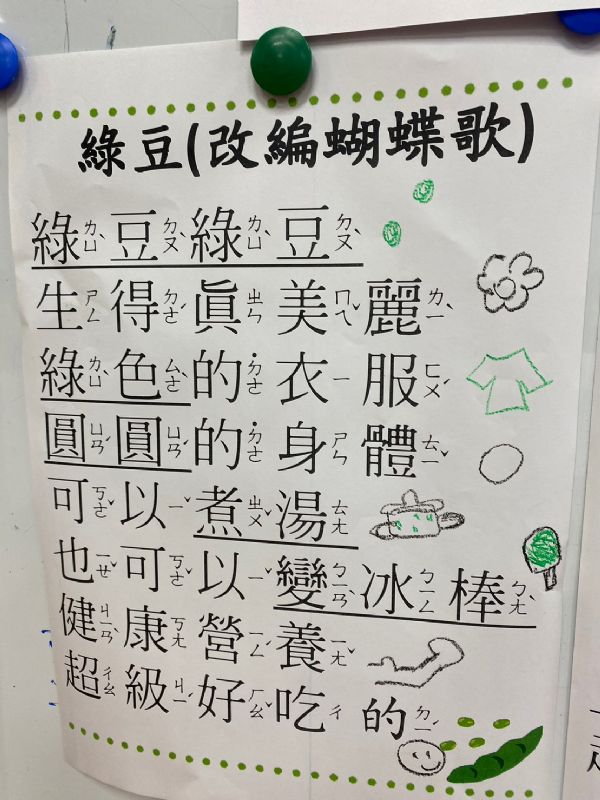 綠豆(改編蝴蝶歌)
綠ㄌㄩˋ豆ㄉㄡˋ綠ㄌㄩˋ豆ㄉㄡˋ
生ㄕㄥ得ㄉㄜˊ真ㄓㄣ美ㄇㄟˇ麗ㄌㄧˋ
綠ㄌㄩˋ色ㄙㄜˋ的˙ㄉㄜ衣ㄧ服ㄈㄨˊ
圓ㄩㄢˊ圓ㄩㄢˊ的˙ㄉㄜ身ㄕㄣ體ㄊㄧˇ
可ㄎㄜˇ以ㄧˇ煮ㄓㄨˇ湯ㄊㄤ
也ㄧㄝˇ可ㄎㄜˇ以ㄧˇ變ㄅㄧㄢˋ冰ㄅㄧㄥ棒ㄅㄤˋ
健ㄐㄧㄢˋ康ㄎㄤ營ㄧㄥˊ養ㄧㄤˇ
超ㄔㄠ級ㄐㄧˊ好ㄏㄠˇ吃ㄔ的ㄉㄧˊ